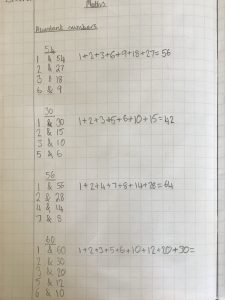 Maths
Abundant numbers
54
1 & 54 1+2+3+6+9+18+27=66
2 & 27
3 & 18
6 & 9
30
1 & 30 1+2+3+5+6+10+15=42
2 & 15
3 & 10
5 & 6
56
1 & 56 1+2+4+7+8+14+28=64
2 & 28
4 & 14
7 & 8
60
1 & 60 1+2+3+5+6+10+12+20+30=
2 & 30
3 & 20
5 & 12
6 & 10